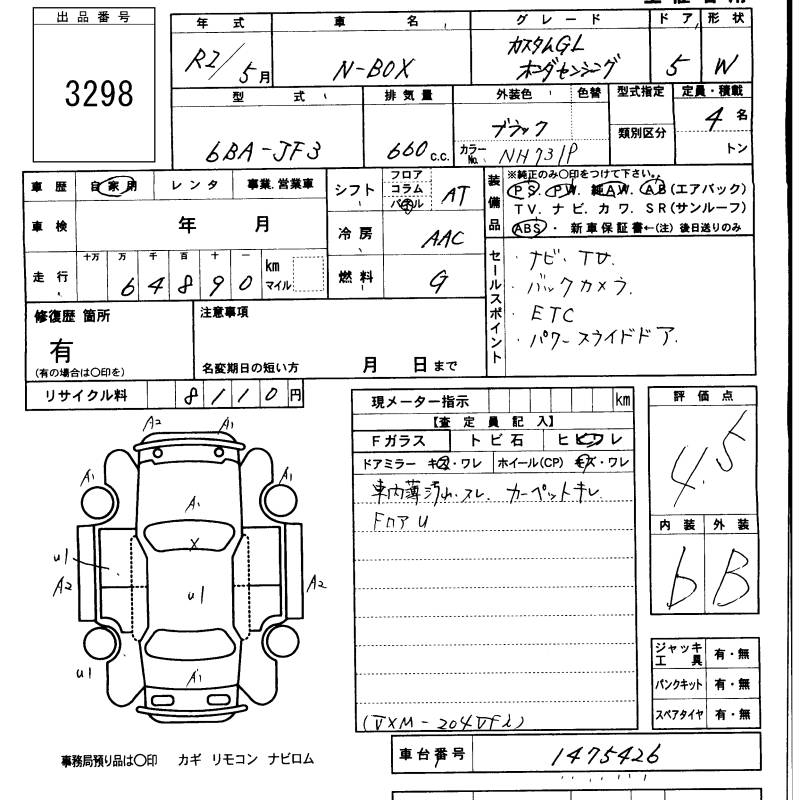 出品番号
3298
年式 車名 グレード ドア 形状
R2/5月 N-BOX カスタムGL ホンダセンシング 5 W
型式 排気量 外装色 色替 型式指定 定員・積載
6BA-JF3 660c.c. ブラック 類別区分 4名
カラーNo. NH731P トン
車歴 自家用 レンタ 事業.営業車
車検 年 月
走行 十万 万 千 百 十 一
64890 km マイル
シフト フロア コラム パネル AT
冷房 AAC
燃料 G
装備品
※純正のみ〇印をつけて下さい。
PS. PW. 純AW. AB(エアバック)
TV. ナビ. カワ. SR(サンルーフ)
ABS・新車保証書←(注)後日送りのみ
セールスポイント
・ナビ・TV.
・バックカメラ.
・ETC
・パワースライドドア.
修復歴 箇所
有
(有の場合は〇印を)
注意事項
名変期日の短い方 月 日まで
リサイクル料 8110円
現メーター指示 km
【査定員記入】
Fガラス トビ石 ヒビワレ
ドアミラー キズ・ワレ ホイール(CP) キズ・ワレ
車内薄汚れ.スレ. カーペットキレ
FロアU
(VXM-204VFi)
評価点
4.5
内装 外装
b B
A2 A1
A1 A1
A1
X
U1
A2 U1 A2
U1
A1
ジャッキ工具 有・無
パンクキット 有・無
スペアタイヤ 有・無
事務局預り品は〇印 カギ リモコン ナビロム
車台番号 1475426